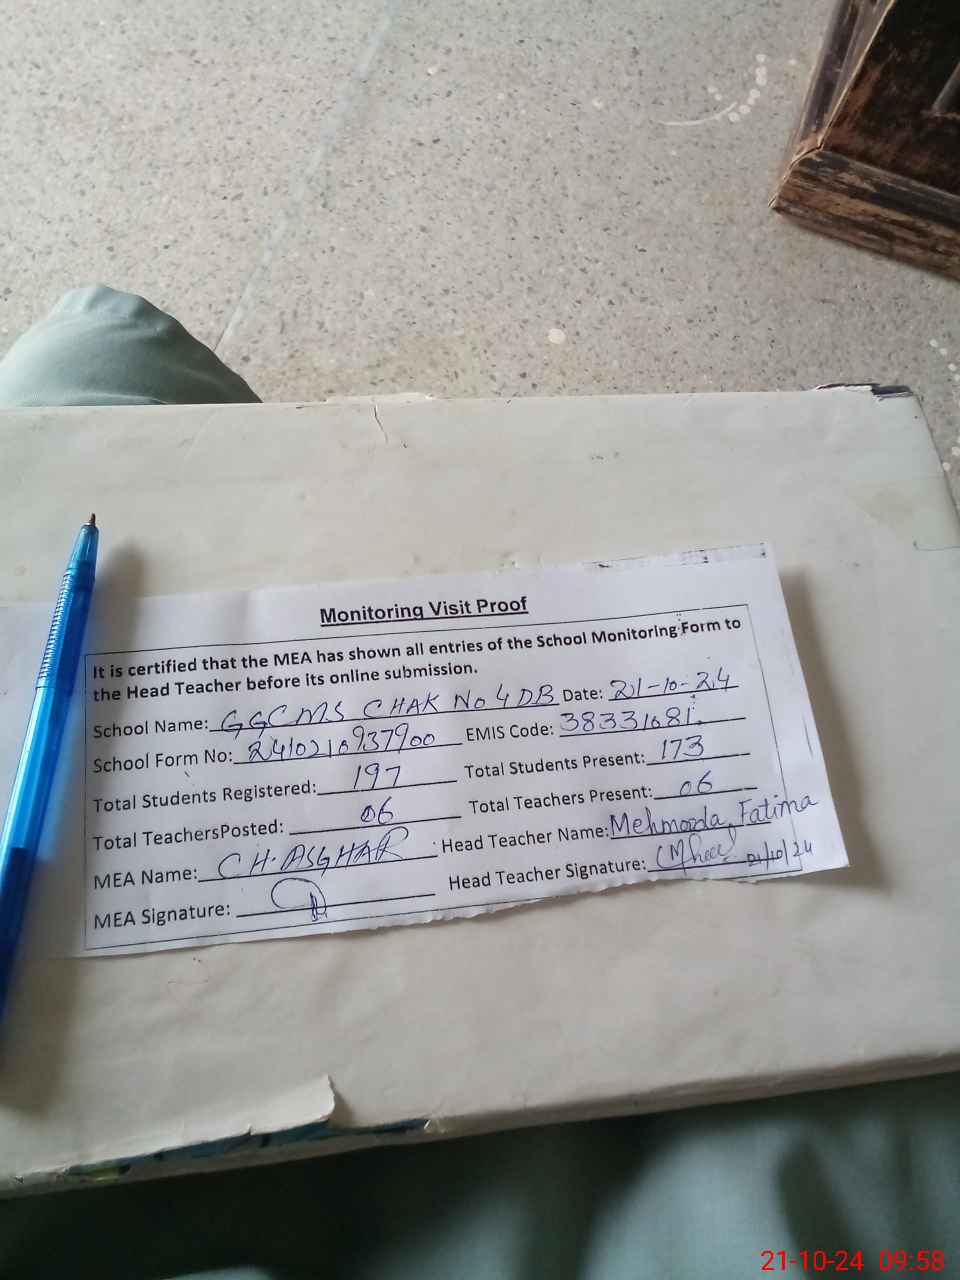 Monitoring Visit Proof
It is certified that the MEA has shown all entries of the School Monitoring Form to
the Head Teacher before its online submission.
School Name: GGCMS CHAK No 4 DB Date: 21-10-24
School Form No: 2410210937900 EMIS Code: 38331681
Total Students Registered: 197 Total Students Present: 173
Total TeachersPosted: 06 Total Teachers Present: 06
MEA Name: CH. ASGHAR Head Teacher Name: Mehmooda Fatima
MEA Signature: Head Teacher Signature: 21/10/24
21-10-24 09:58